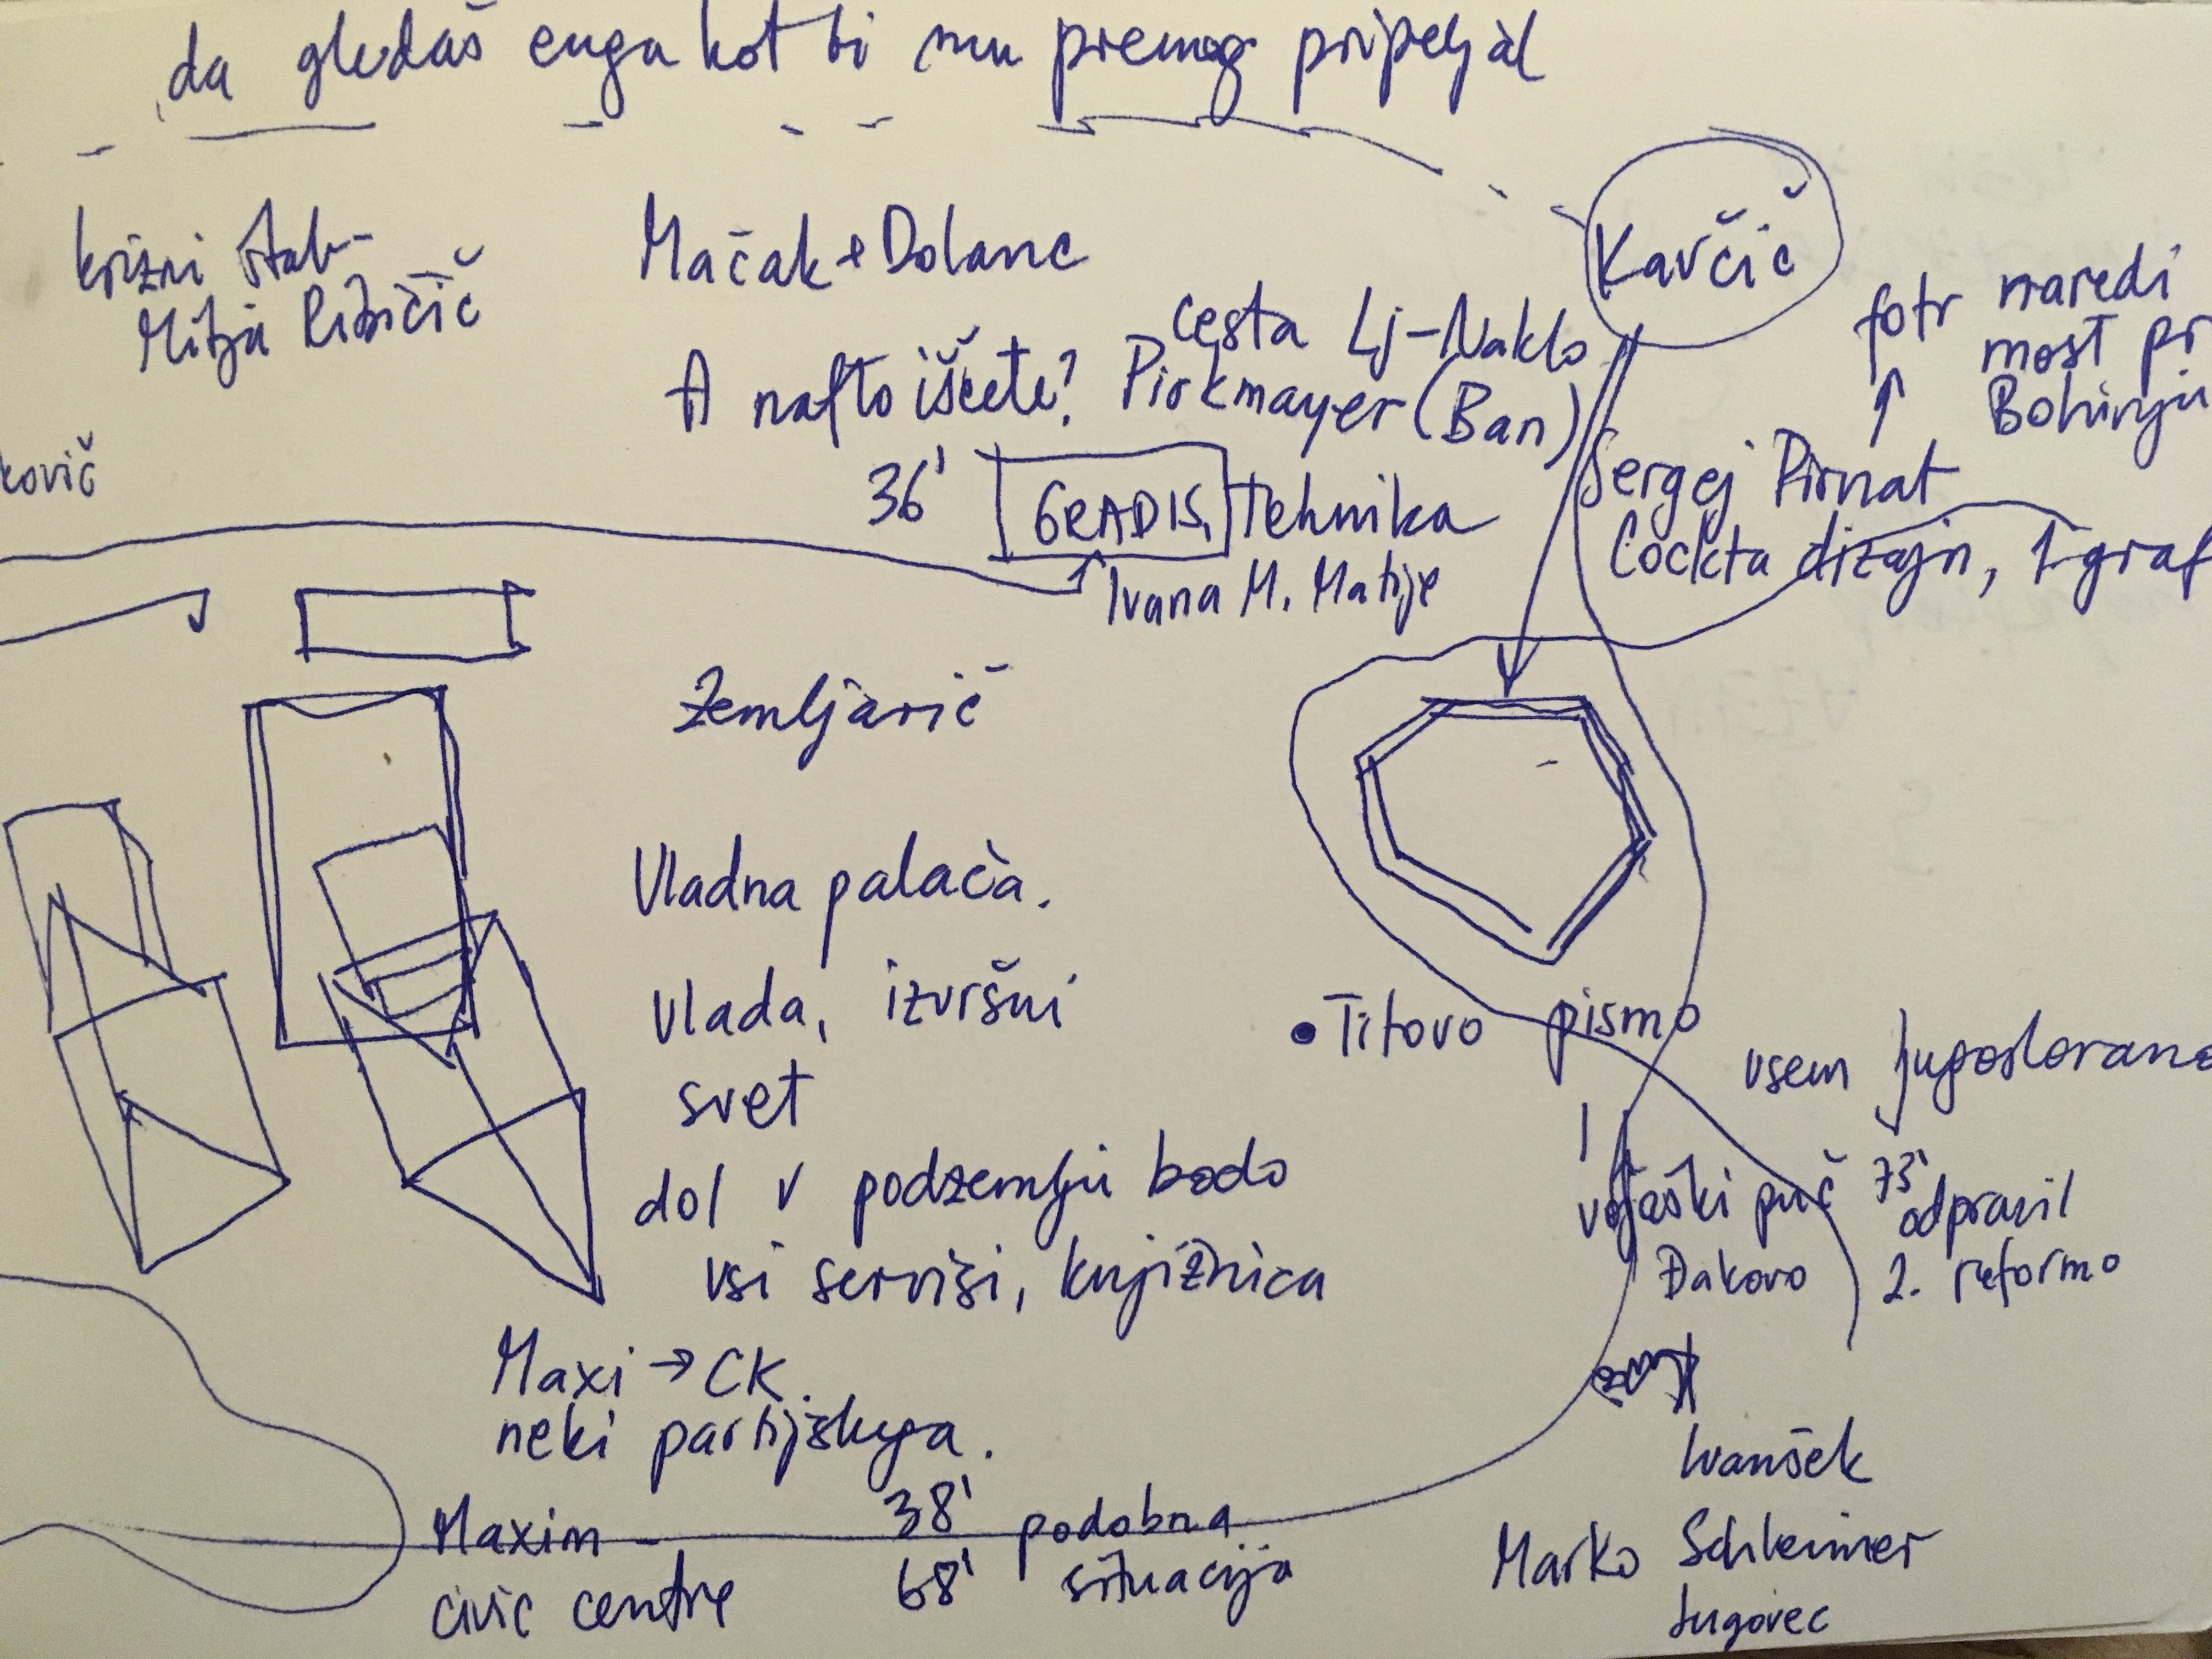 da gledaš enga kot bi mu premog pripeljal
krizni štab-
Mitja Ribičič
Mačak + Dolanc
Kavčič
cesta Lj-Naklo
A nafto iščete? Pirkmayer (Ban)
fotr naredi
most pri
Bohinju
ković
36' GRADIS, Tehnika
Ivana M. Matije
Sergej Pirnat
Cockta dizajn, 1 graf
Zemljarič
Vladna palača.
Vlada, izvršni
svet
dol v podzemlju bodo
vsi servisi, knjižnica
• Titovo pismo
vsem Jugoslovano
vojaški puč 73' odpravil
Đakovo 2. reformo
Maxi → CK.
neki partijskega.
Maxim -
civic centre
38' podobna
68' situacija
Ivanšek
Marko Schleimer
Jugovec